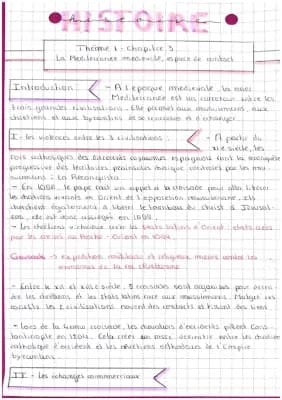 HISTOIRE
Thème 1 - Chapitre 3
La Méditerranée médiévale, espace de contact
Introduction : - A l'époque médiévale, la mer
Méditerranée est un carrefour entre les
trois grandes civilisations. Elle permet aux musulmans, aux
chrétiens et aux byzantins de se rencontrer et d'échanger.
I - les violences entre les 3 civilisations : - A partir du
XIe siècle, les
rois catholiques des différents royaumes espagnols font la reconquête
progressive des territoires péninsule ibérique contrôlés par les mu-
sulmans : La Reconquista
- En 1095, le pape fait un appel à la croisade pour aller libérer
les chrétiens vivants en Orient de l'expansion musulmane. Ils
cherchent également à libérer le tombeau du Christ à Jérusal-
em, elle est donc assiégée en 1099.
- Les chrétiens créer les états latins d'Orient : états créés
par les croisés au Proche-Orient en 1099
Croisade -> expédition militaire et religieuse menée contre les
ennemis de la foi chrétienne
- Entre le XIe et XIIIe siècle, 8 croisades sont organisées pour défen-
dre les chrétiens et les états latins face aux musulmans. Malgré ces
conflits, les 2 civilisations nouent des contacts et tissent des liens
- lors de la 4eme croisade, les chrétiens d'occidents pillent Cons-
tantinople en 1204. Cela créer un schisme définitif entre les chrétiens
catholique d'occident et les chrétiens orthodoxes de l'Empire
byzantin.
II - Les échanges commerciaux